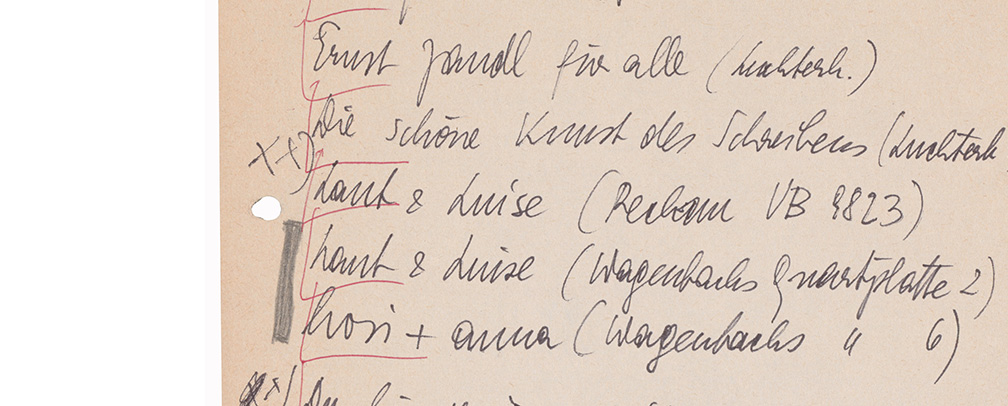 Ernst Jandl für alle (Luchterh.)
Die schöne Kunst des Schreibens (Luchterh
Laut & Luise (Reclam UB 9823)
Laut & Luise (Wagenbachs Quartplatte 2)
hosi + anna (Wagenbachs " 6)